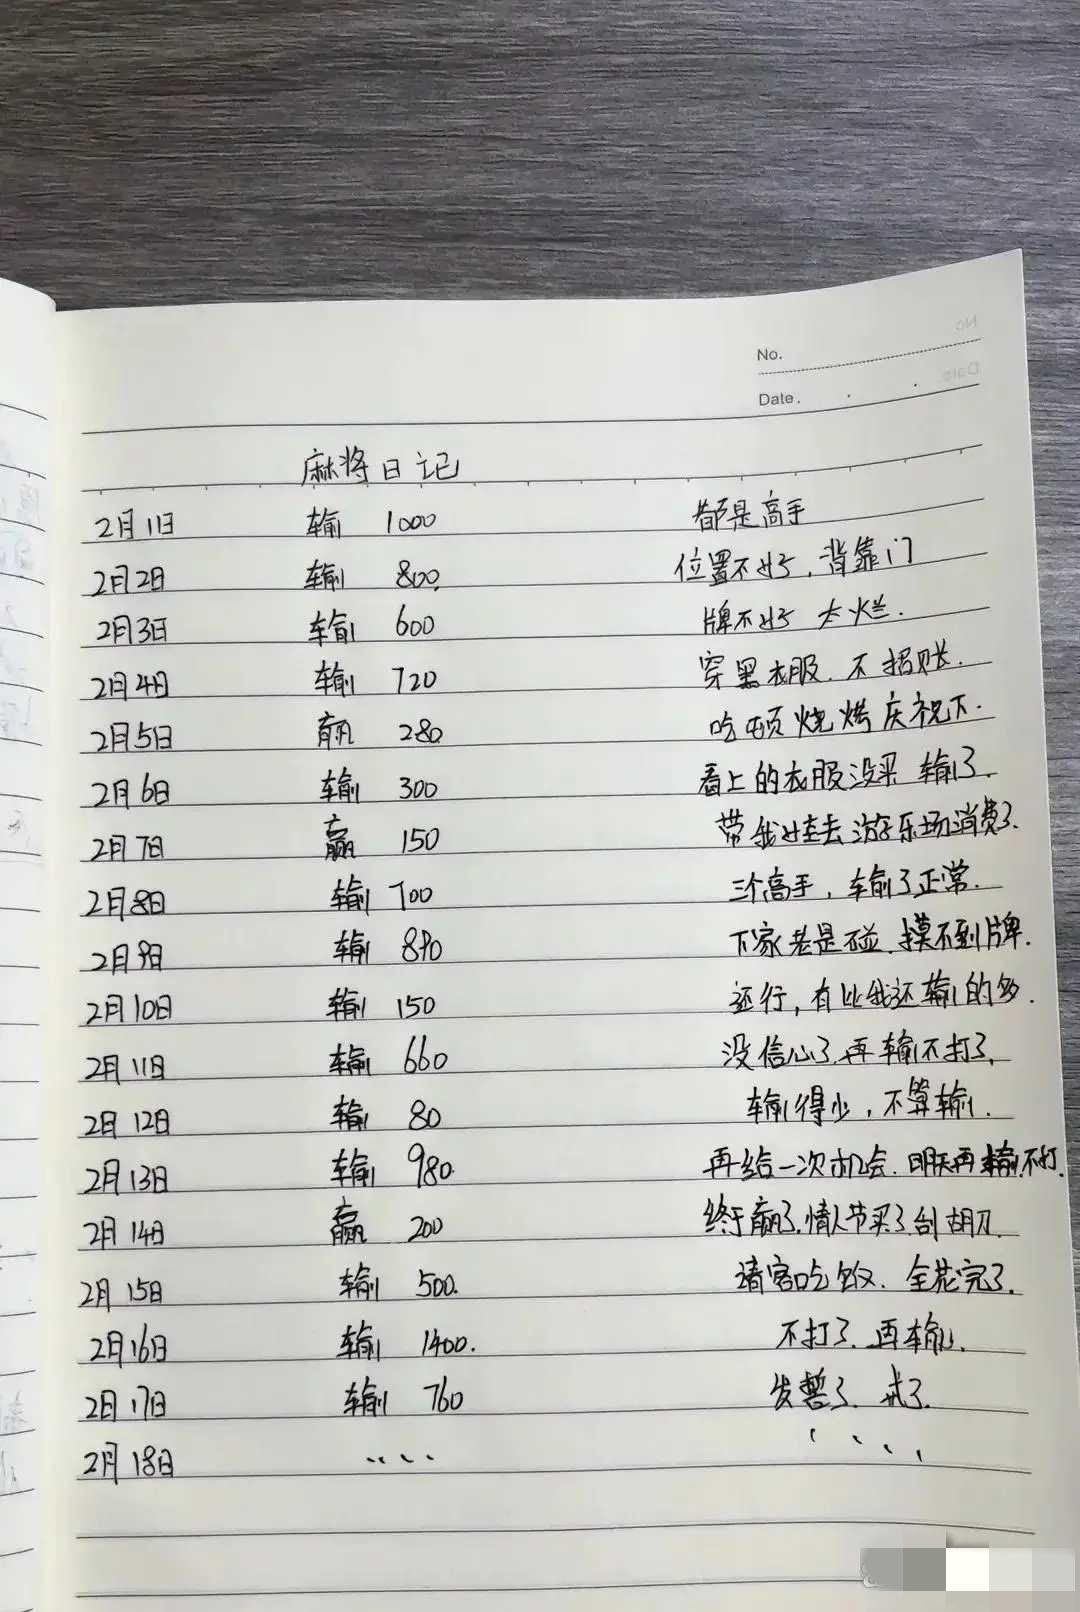 No.
Date.
麻将日记
2月1日 输 1000 都是高手
2月2日 输 800. 位置不好，背靠门
2月3日 输 600 牌不好 太烂.
2月4日 输 720 穿黑衣服. 不招财.
2月5日 赢 280 吃顿烧烤庆祝下.
2月6日 输 300 看上的衣服没买 输了.
2月7日 赢 150 带我娃去游乐场消费了.
2月8日 输 700 三个高手，输了正常.
2月9日 输 890 下家老是碰. 摸不到牌.
2月10日 输 150 还行，有比我还输的多.
2月11日 输 660 没信心了.再输不打了.
2月12日 输 80 输得少，不算输.
2月13日 输 980. 再给一次机会. 明天再输不打.
2月14日 赢 200 终于赢了.情人节买了刮胡刀.
2月15日 输 500. 请客吃饭. 全花完了.
2月16日 输 1400. 不打了.再输.
2月17日 输 760 发誓了. 戒了.
2月18日 .... ....